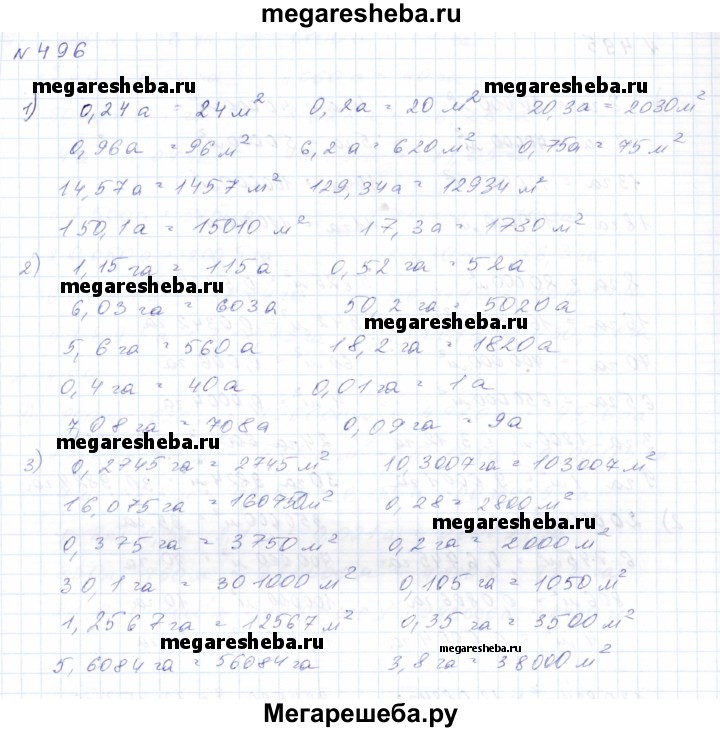 megaresheba.ru
№ 496
megaresheba.ru megaresheba.ru
1) 0,24а = 24м² 0,2а = 20 м² 20,3а = 2030м²
0,96а = 96м² 6,2а = 620м² 0,75а = 75 м²
14,57а = 1457 м² 129,34а = 12934 м²
150,1а = 15010 м² 17,3а = 1730 м²
2) 1,15га = 115а 0,52 га = 52а
megaresheba.ru
6,03 га = 603а 50,2 га = 5020а
megaresheba.ru
5,6 га = 560 а 18,2 га = 1820а
0,4 га = 40а 0,01 га = 1а
7,08 га = 708а 0,09 га = 9а
megaresheba.ru
3) 0,2745 га = 2745 м² 10,3007га = 103007 м²
16,075 га = 160750м² 0,28 = 2800 м²
megaresheba.ru
0,375 га = 3750 м² 0,2 га = 2000м²
30,1 га = 301000 м² 0,105 га = 1050 м²
1,2567 га = 12567 м² 0,35 га = 3500 м²
megaresheba.ru megaresheba.ru
5,6084 га = 56084 га 3,8 га = 38000м²
Мегарешеба.ру